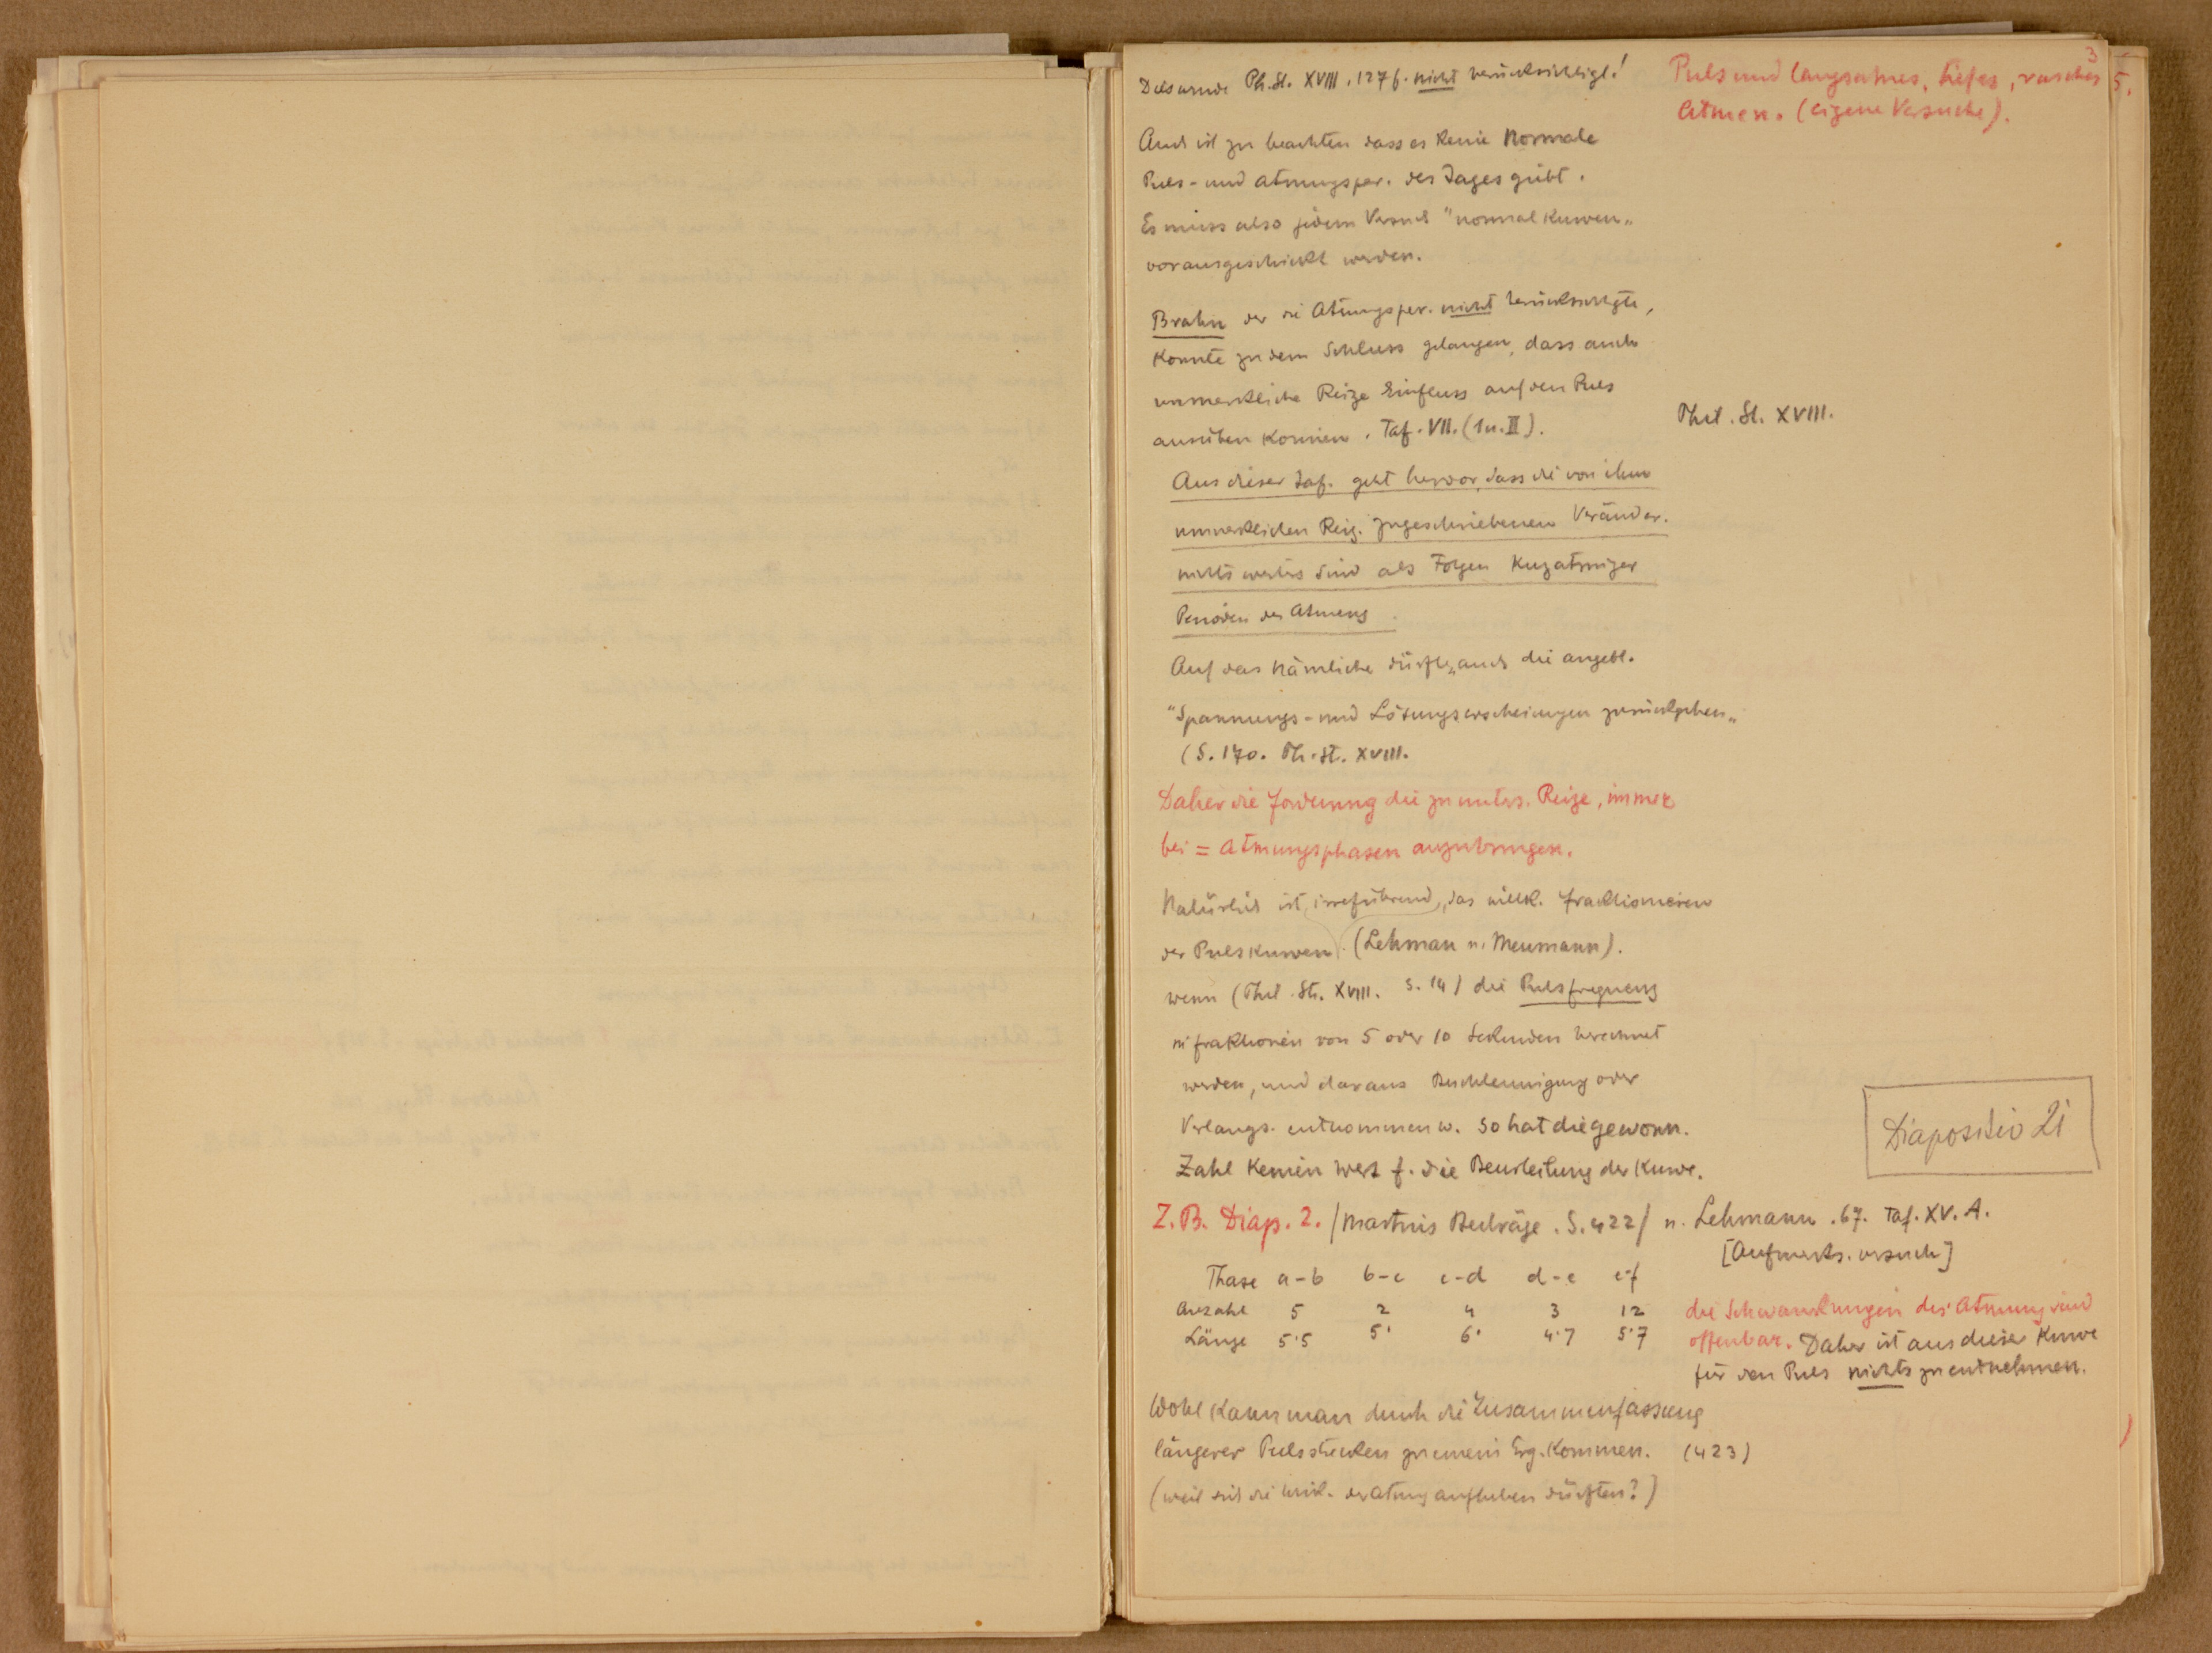 Ph. St. XVIII. 127 f. nicht berücksichtigt!
Puls und langsames, tiefes, rasches
Atmen. (eigene Versuche).
3
5.
Auch ist zu beachten dass es keine Normale
Puls- und Atmungsper. des Tages giebt.
Es muss also jedem Versuch "normal Kurven"
vorausgeschickt werden.
Brahn der die Atmungsper. nicht berücksichtigte,
konnte zu dem Schluss gelangen, dass auch
unmerkliche Reize Einfluss auf den Puls
ausüben können. Taf. VII. (1 u. II).
Phil. St. XVIII.
Aus dieser Taf. geht hervor, dass die von ihm
unmerklichen Reiz. zugeschriebenen Veränder.
nichts weiters sind als Folgen kurzatmiger
Perioden des Atmens
Auf das nämliche dürften auch die angebl.
"Spannungs- und Lösungserscheinungen zurückgehen"
(S. 170. Ph. St. XVIII.
Daher die Forderung die zu unters. Reize, immer
bei = Atmungsphasen anzubringen.
Natürlich ist irreführend, das willk. Fraktionieren
der Pulskurven. (Lehman u. Meumann).
wenn (Phil. St. XVIII. S. 14) die Pulsfrequenz
in fraktionen von 5 oder 10 Sekunden berechnet
werden, und daraus Beschleunigung oder
Verlangs. entnommen w. so hat die gewonn.
Zahl keinen wert f. die Beurteilung der Kurve.
Diapositiv 2i
Z.B. Diap. 2. (Martius Beiträge. S. 422) n. Lehmann. 67. Taf. XV. A.
[Aufmerks. versuch]
Phase a-b b-c c-d d-e e-f
Anzahl 5 2 4 3 12
Länge 5·5 5· 6· 4·7 5·7
die Schwankungen der Atmung sind
offenbar. Daher ist aus dieser Kurve
für den Puls nichts zu entnehmen.
Wohl kann man durch die Zusammenfassung
längerer Pulsstrecken zu einem Erg. kommen. (423)
(weil sich die wirk. der Atmung aufheben dürften?)